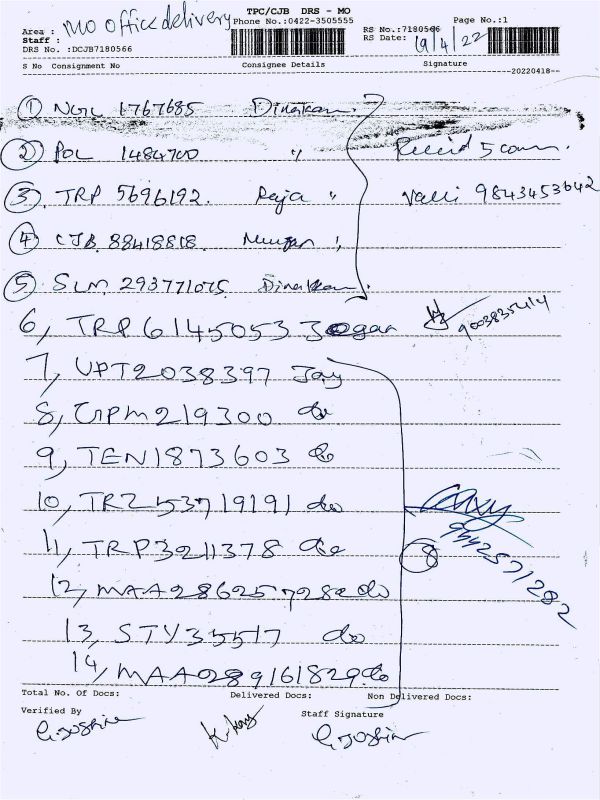 MO office delivery
TPC/CJB DRS - MO
Phone No.:0422-3505555
Area :
Staff :
DRS No. :DCJB7180566
RS No.:7180566
RS Date: 19/4/22
Page No.:1
S No Consignment No Consignee Details Signature
--20220418--
1 NGL 1767685 Dinakaran
2 POL 1484700 "
3 TRP 5696192. Raja "
Valli 9843453642
4 CJB 88418818. Murugan "
5 SLM 293771075 Dinakaran
6, TRP6145053 Jegan
7, VPT2038397 Jay
8, TPM219300 do
9, TEN1873603 do
10, TRZ153719191 do
11, TRP3211378 do
8
12, MAA286257282 do
13, STY35517 do
14, MAA0289161829 do
Total No. Of Docs: Delivered Docs: Non Delivered Docs:
Verified By Staff Signature